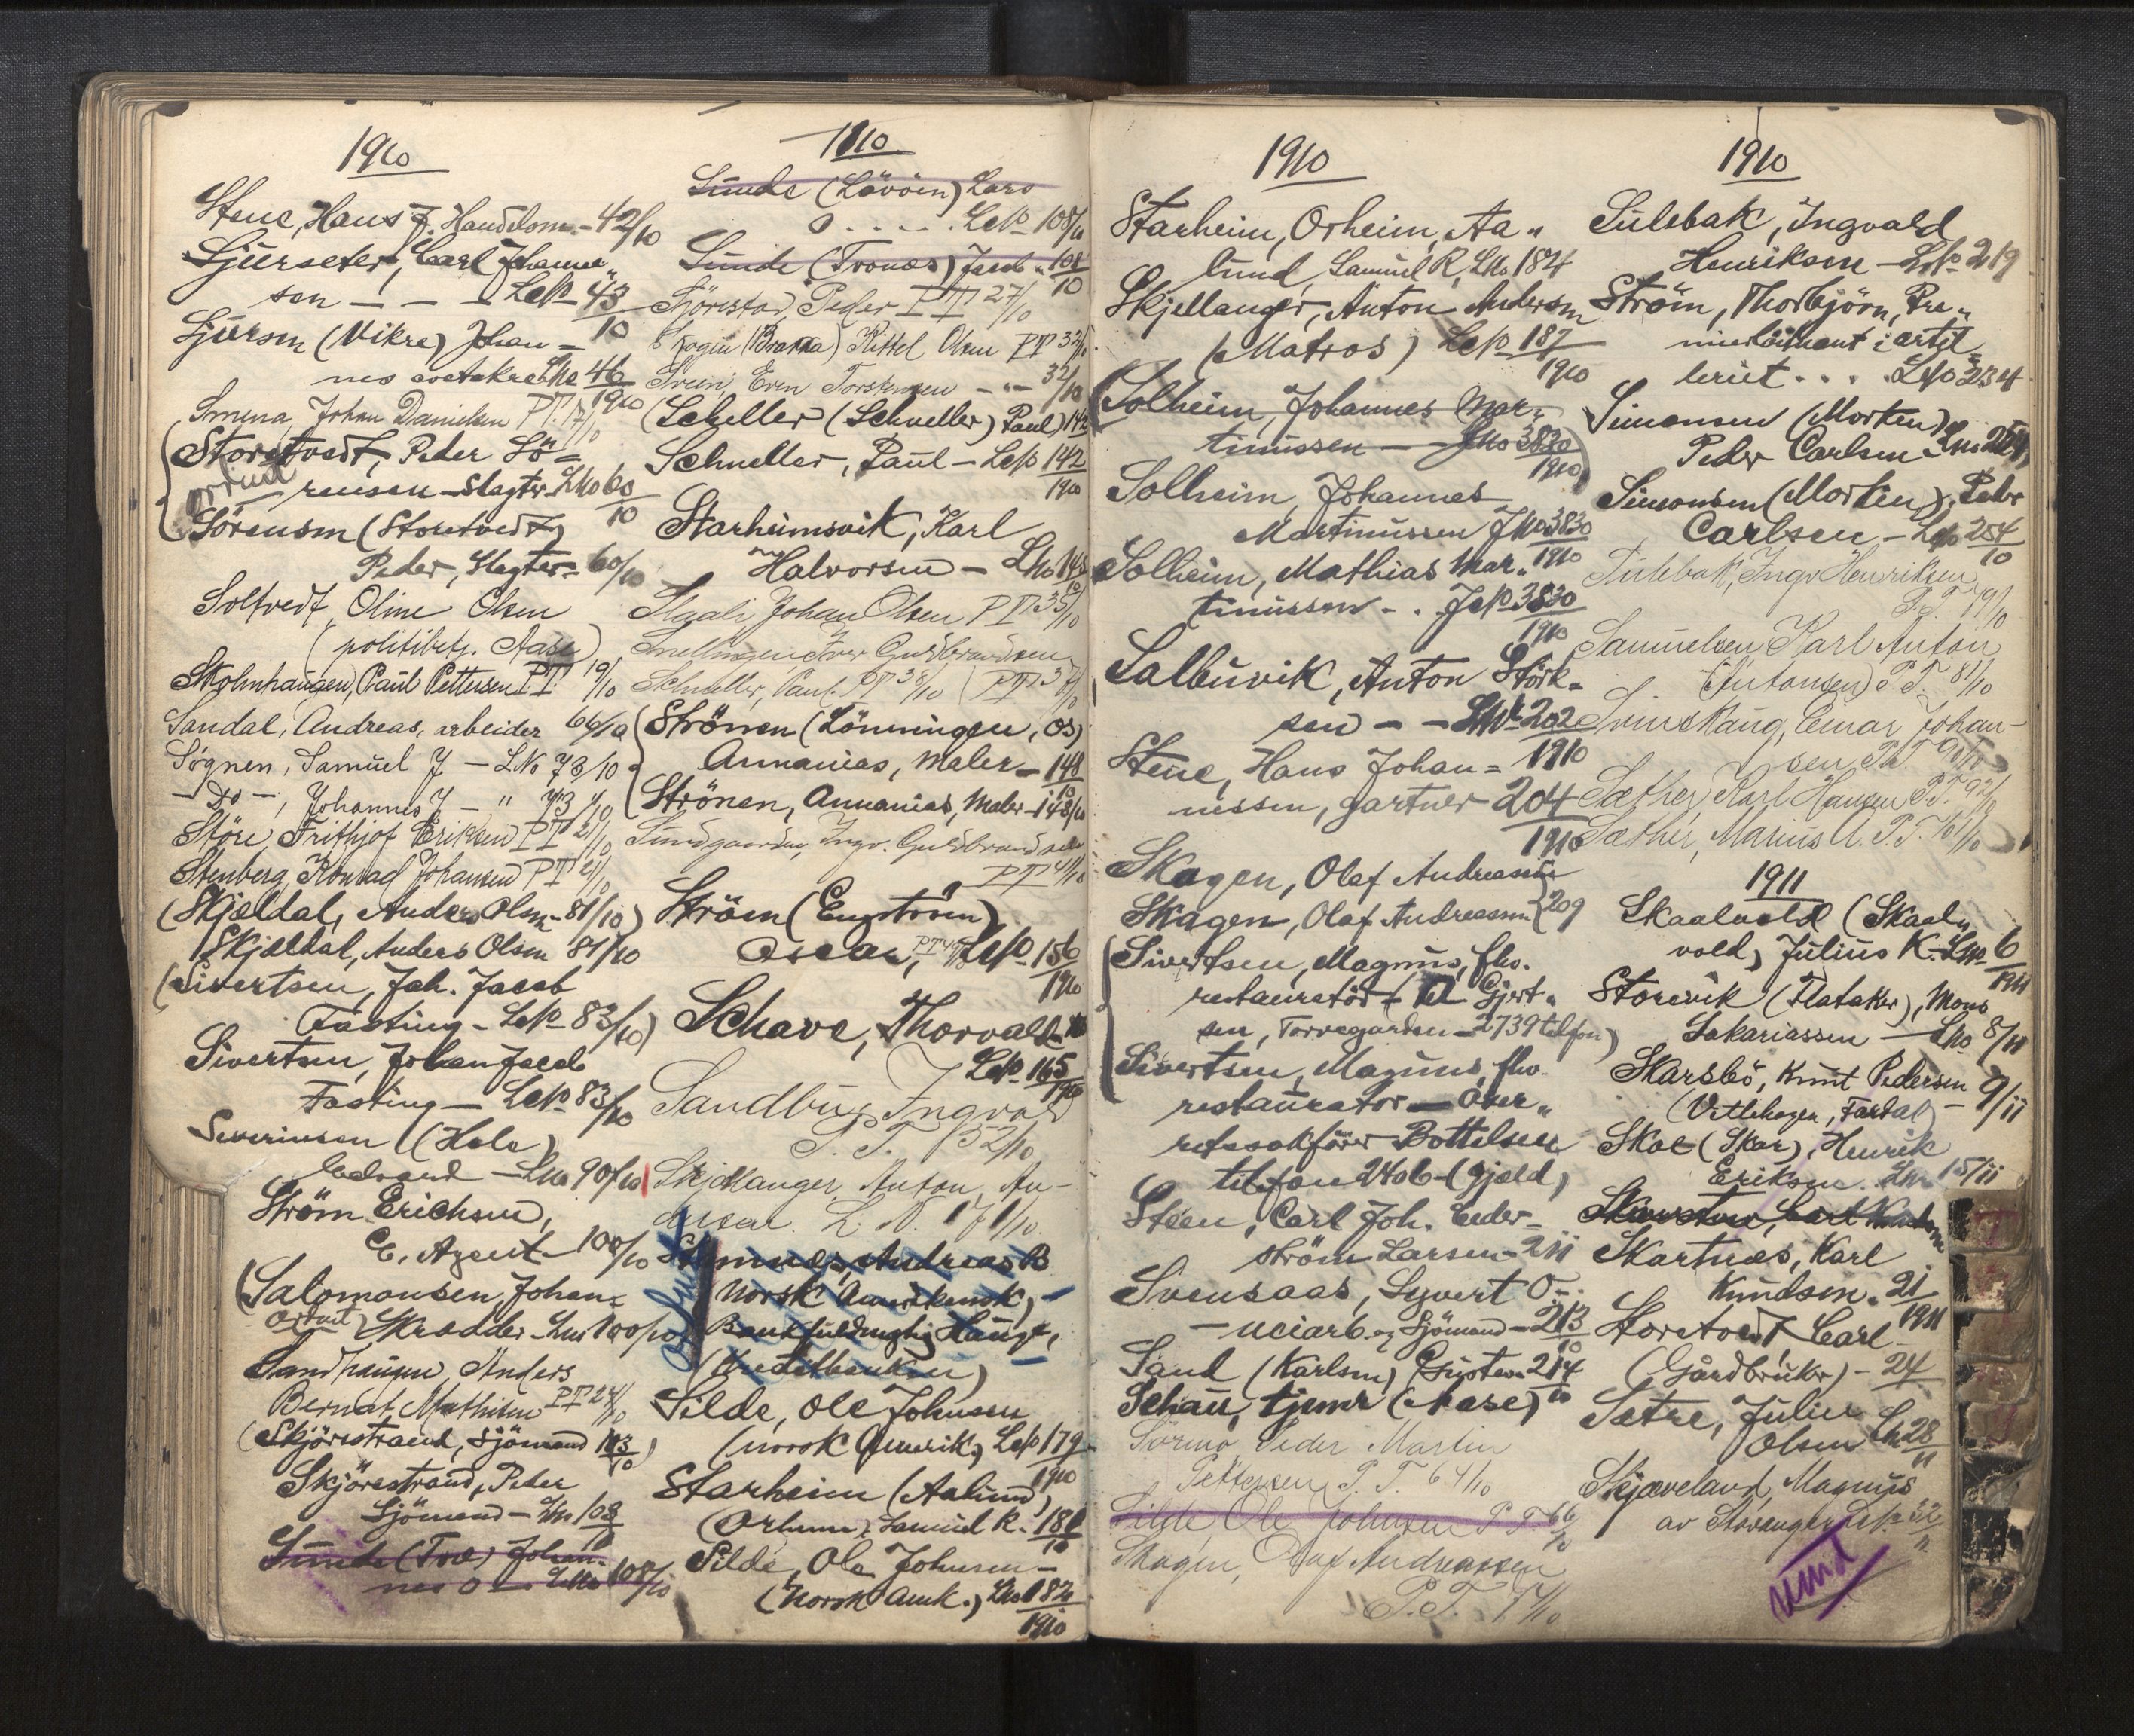 1910
Stene, Hans J. Handelsm. - 42/10
Sjurseter, Carl Johanne„
sen - - - Lep 43/10
Sjursen (Vikre) Johan =
nes Lno 46/1910
Smina, Johan Danielsen P.T. 17/10
Storetvedt, Peder Sö =
rensen - Slagter Lno 60/10
Sörensen (Storetvedt)
Peder, Slagter - 60/10
Soltvedt, Oline Olsen
(politibetj. Aase)
Skolnhaugen, Paul Pettersen P.T. 19/10
Sandal, Andreas, arbeider 64/10
Sognen, Samuel J - LNo 73/10
- Do -, Johannes J - " 73/10
Störe, Frithjof Eriksen PT 21/10
Stenberg, Konrad Johansen PT 21/10
(Skjældal, Anders Olsen - 81/10)
Skjældal, Anders Olsen 81/10
(Sivertsen, Joh. Jacob
Fasting - Lep 83/10)
Sivertsen, Johan Jacob
Fasting - Lep 83/10
Severinsen (Hole)
Edvard - Lno 90/10
Ström Erichsen,
C. Agent - 100/10
(Salomonsen, Johan =
Skrædder - Lno 100/10
Sandhaugen, Anders
Bernat Mathisen PT 24/10
(Skjörestrand, Sjömand 103/10)
Skjörestrand, Peder
Sjömand - Lno 103/10
Sunde (Tvæ) Johan-
nes O - Lno 108/10
1910
Sunde (Lövöen) Lars
O . . . . . Lep 108/10
Sunde (Tronæs) Jacob „ 108/10
Sjörestad, Peder P.T. 27/10
Skogen (Brakka) Kittel Olsen PT 32/10
Svein, Even Torstensen - „ - 32/10
(Scheller (Schneller) Paul) 142
Schneller, Paul - Lep 142/1910
Starheimsvik, Karl
Halvorsen - Lno 143/10
Olsen PT 35/10
Iver Guldbrandsen
PT 37/10
Schneller, Paul. PT 38/10
(Strönen (Lönningen, Os)
Annanias, Maler - 148/10
Strönen, Annanias, Maler - 148/10
Sundgaarden, Ingv. Guldbrandsen
PT 41/10
Ström (Engström)
Oscar, Lep 156/1910
Schave, Thorvald
Lep 165/1910
Sandbu, Ingvald
P. T. 52/10
Skjellanger, Anton An-
dersen. L. N. 171/10
Stamnæs, Andreas B
(Norsk Amerikansk, -
Bankfuldmægtig Hauge,
(Kreditbanken)
Silde, Ole Johnsen
(Norsk Amerik.) Lep 179/1910
Starheim (Aalund)
(Orheim), Samuel R. 184/10
Silde, Ole Johnsen -
(Norsk Amk.) Lno 182/1910
1910
Starheim, Orheim, Aa „
lund, Samuel R, Lno 184
Skjellanger, Anton Andersen
(Matros) Lep 187/1910
(Solheim, Johannes Mar-
tinussen - Jno 3830/1910)
Solheim, Johannes
Martinussen Jno 3830/1910
Solheim, Mathias Mar„
tinussen - . Jep 3830/1910
Salbuvik, Anton Störk-
sen - - Lno 202/1910
Stene, Hans Johan =
nessen, gartner 204/1910
Skagen, Olaf Andreassen
Skagen, Olaf Andreassen } 209
(Sivertsen, Magnus, fhv.
restauratör - Gjert„
sen, Torvegaarden - 2739 telefon)
Sivertsen, Magnus, fhv.
restauratör - Over„
retssakförer Bottelsen
telefon 2406 - (gjeld)
Steen, Carl Joh. Ceder-
ström Larsen - 211
Svensaas, Syvert O-
Sjömand - 213/10
Sand (Karlsen) Gusten - 214/10
Schau, tjener (Aase)
Sormo, Peder Martin
Pettersen P. T. 64/10
Silde Ole Johnsen P.T. 66/10
Skagen, Olaf Andreassen
P. T. 74/10
1910
Sulebak, Ingvald
Henriksen - Lep 219
Ström, Thorbjörn, Pre„
mierlöitnant i artil
leriet . . . . Lno 234
Simonsen (Morken),
Peder Carlsen - Lno 254
Simonsen (Morken), Peder
Carlsen - Lep 254/10
Sulebak, Ingv Henriksen
P.T. 79/10
Samuelsen Karl Anton
(Antonsen) P.T. 81/10
Svinskaug, Einar Johan-
sen P.T.
Sæther, Karl Hansen P.T. 92/10
Sæther, Marius A. P.T. 101/10
1911
Skaalvold (Skaal„
vold, Julius K. - Lep 6/1911
Storevik (Flataker), Mons
Sakariassen - Lno 8/11
Skarsbö, Knut Pedersen
(Vetlehagen, Fardal) - 9/11
Skot (Skar), Henrik
Eriksen. Lno 15/11
Skarstnæs, Carl Knudsen
Skartnæs, Karl
Knudsen. 21/1911
Storetvedt Carl
(Gårdbruker) - 24
Sætre, Julius
Olsen Ln 28/11
Skjæveland, Magnus
av Stavanger Lep 32/11